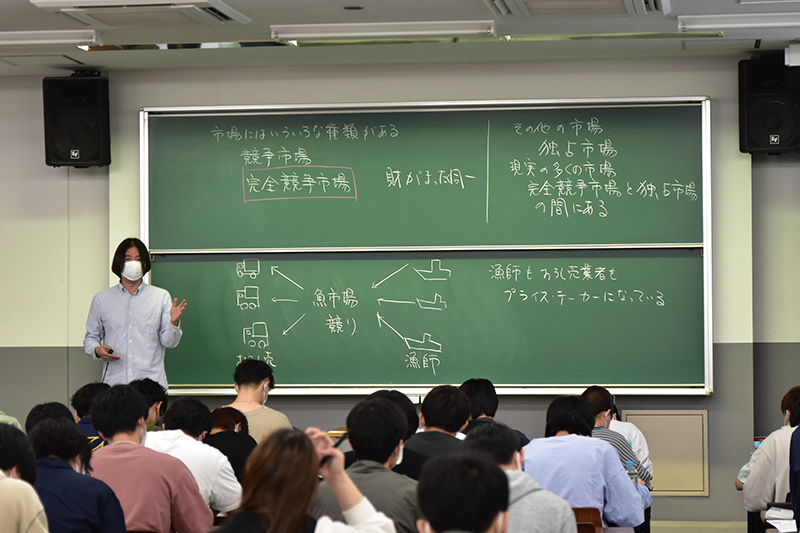 市場にはいろいろな種類がある
競争市場
完全競争市場
財がまったく同一
その他の市場
独占市場
現実の多くの市場
完全競争市場と独占市場
の間にある
魚市場
競り
おろし売
漁師
漁師もおろし売業者も
プライス・テーカーになっている
EV
EV